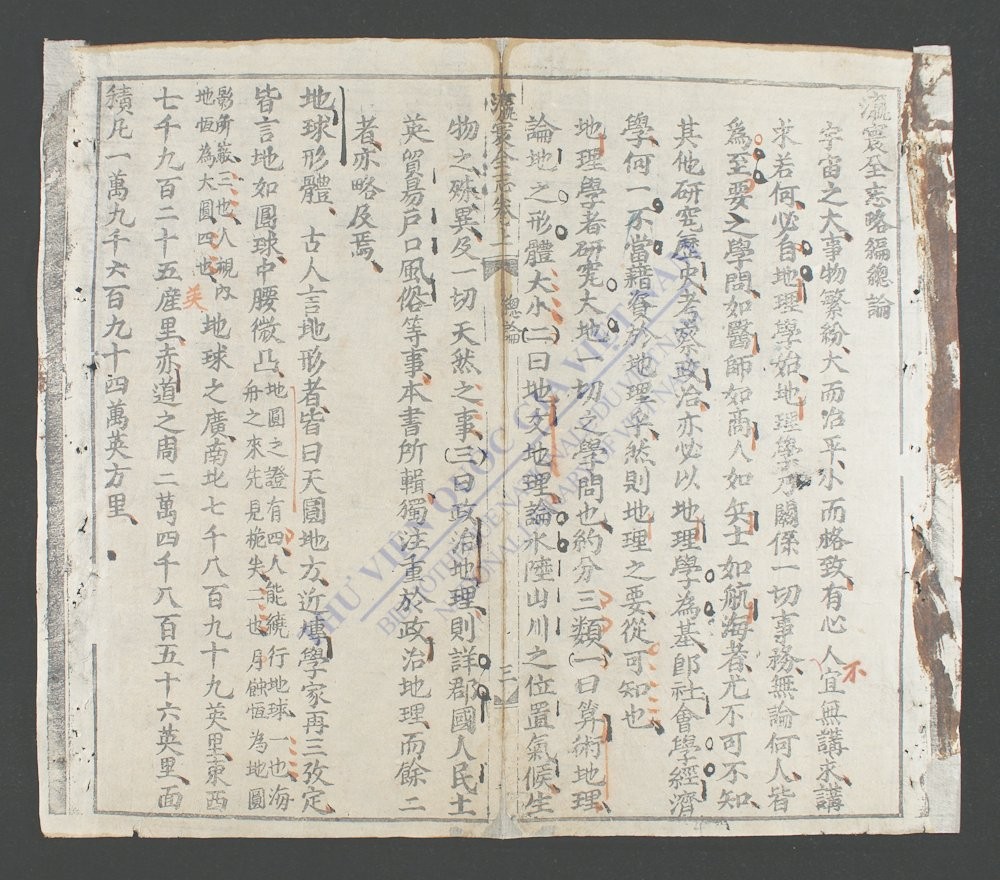 瀛寰全志略編總論
宇宙之大事物繁紛大而治平小而格致有心人宜無講求講
不
求若何必自地理學始地理學乃關係一切事務無論何人皆
為至要之學問如醫師如商人如兵士如航海者尤不可不知
其他研究歷史考察政治亦必以地理學為基即社會學經濟
學何一不當藉資於地理乎然則地理之要從可知也
地理學者研究大地一切之學問也約分三類(一)曰算術地理
論地之形體大小(二)曰地文地理論水陸山川之位置氣候生
瀛寰全志卷二 總論 三
物之殊異及一切天然之事(三)曰政治地理則詳郡國人民土
英貿易戶口風俗等事本書所輯獨注重於政治地理而餘二
者亦略及焉
地球形體 古人言地形者皆曰天圓地方近博學家再三攷定
皆言地如圓球中腰微凸地圓之證有四人能繞行地球一也海舟之來先見桅尖二也月蝕恆為地圓
影所蔽三也人視內地恆為大圓四也 地球之廣南北七千八百九十九英里東西
英
七千九百二十五英里赤道之周二萬四千八百五十六英里面
積凡一萬九千六百九十四萬英方里
THƯ VIỆN QUỐC GIA VIỆT NAM
BIBLIOTHÈQUE NATIONALE DU VIETNAM
NATIONAL LIBRARY OF VIETNAM